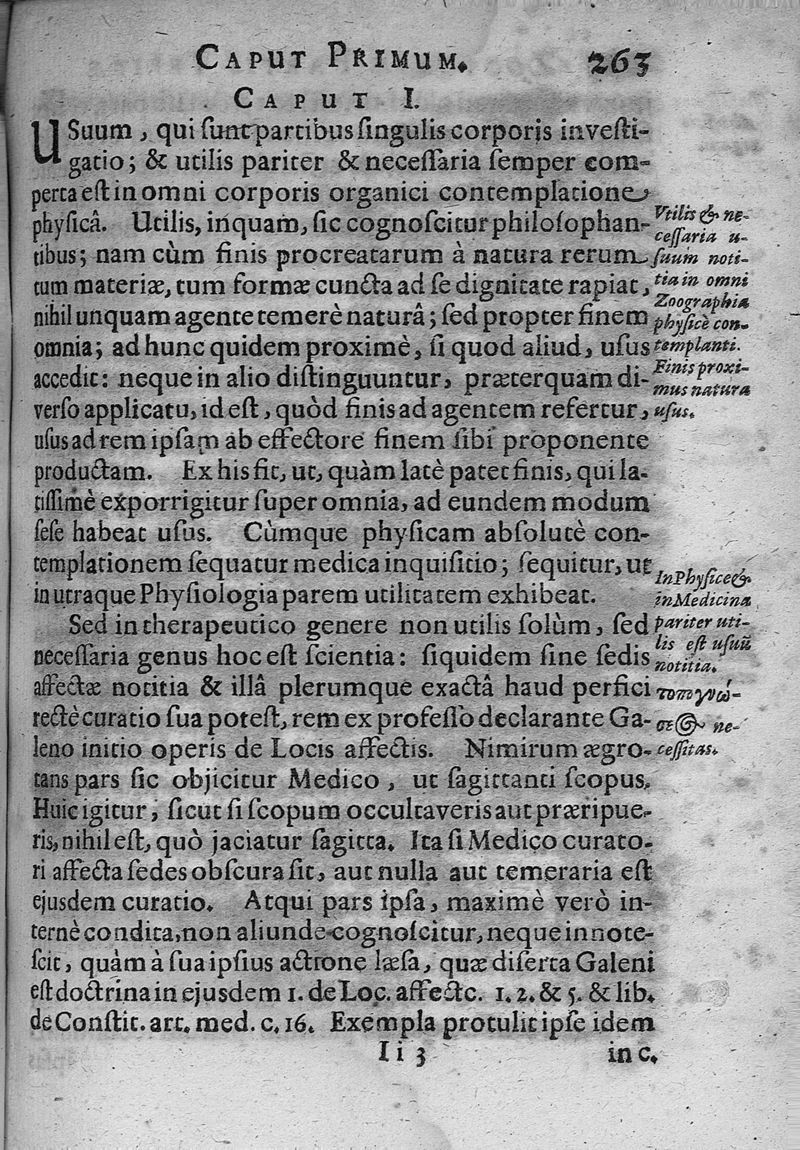 CAPUT PRIMUM. 263
CAPUT I.
USuum, qui ſunt partibus ſingulis corporis inveſti-
gatio; & utilis pariter & neceſſaria ſemper com-
perta eſt in omni corporis organici contemplatione
phyſicâ. Utilis, inquam, ſic cognoſcitur philoſophan-
tibus; nam cùm finis procreatarum à natura rerum
tum materiæ, tum formæ cuncta ad ſe dignitate rapiat,
nihil unquam agente temerè naturâ; ſed propter finem
omnia; ad hunc quidem proximè, ſi quod aliud, uſus
accedit: neque in alio diſtinguuntur, præterquam di-
verſo applicatu, id eſt, quòd finis ad agentem refertur,
uſus ad rem ipſam ab effectore finem ſibi proponente
productam. Ex his fit, ut, quàm latè patet finis, qui la-
tiſſimè exporrigitur ſuper omnia, ad eundem modum
ſeſe habeat uſus. Cùmque phyſicam abſolutè con-
templationem ſequatur medica inquiſitio; ſequitur, ut
in utraque Phyſiologia parem utilitatem exhibeat.
Sed in therapeutico genere non utilis ſolùm, ſed
neceſſaria genus hoc eſt ſcientia: ſiquidem ſine ſedis
affectæ notitia & illâ plerumque exactâ haud perfici
rectè curatio ſua poteſt, rem ex profeſſo declarante Ga-
leno initio operis de Locis affectis. Nimirum ægro-
tans pars ſic objicitur Medico, ut ſagittanti ſcopus.
Huic igitur, ſicut ſi ſcopum occultaveris aut præripue-
ris, nihil eſt, quò jaciatur ſagitta. Ita ſi Medico curato-
ri affecta ſedes obſcura ſit, aut nulla aut temeraria eſt
ejusdem curatio. Atqui pars ipſa, maximè verò in-
ternè condita, non aliunde cognoſcitur, neque innote-
ſcit, quàm à ſua ipſius actione læſa, quæ diſerta Galeni
eſt doctrina in ejusdem 1. de Loc. affect. 1. 2. & 5. & lib.
de Conſtit. art. med. c. 16. Exempla protulit ipſe idem
Ii 3 in c.
Vtilis & ne-
ceſſaria u-
ſuum noti-
tia in omni
Zoographia
phyſicè con-
templanti.
Finis proxi-
mus natura
uſus.
In Phyſice &
in Medicina
pariter uti-
lis eſt uſuũ
notitia.
τοπογνώ-
σεως ne-
ceſſitas.